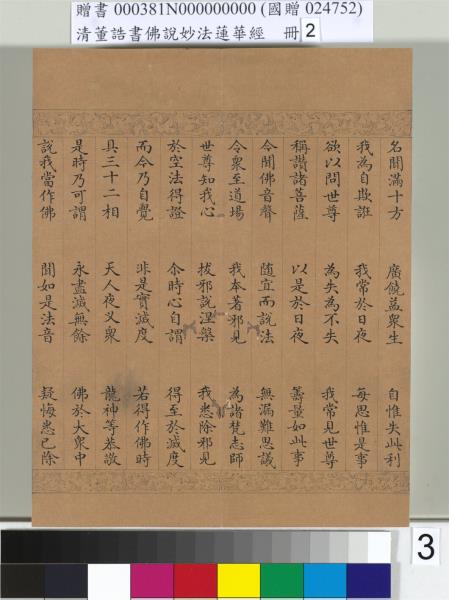 贈書 000381N000000000 (國贈 024752)
清董誥書佛說妙法蓮華經 冊 2
名聞滿十方 廣饒益眾生 自惟失此利
我為自欺誑 我常於日夜 每思惟是事
欲以問世尊 為失為不失 我常見世尊
稱讚諸菩薩 以是於日夜 籌量如此事
今聞佛音聲 隨宜而說法 無漏難思議
令眾至道場 我本著邪見 為諸梵志師
世尊知我心 拔邪說涅槃 我悉除邪見
於空法得證 尒時心自謂 得至於滅度
而今乃自覺 非是實滅度 若得作佛時
具三十二相 天人夜叉眾 龍神等恭敬
是時乃可謂 永盡滅無餘 佛於大眾中
說我當作佛 聞如是法音 疑悔悉已除
3